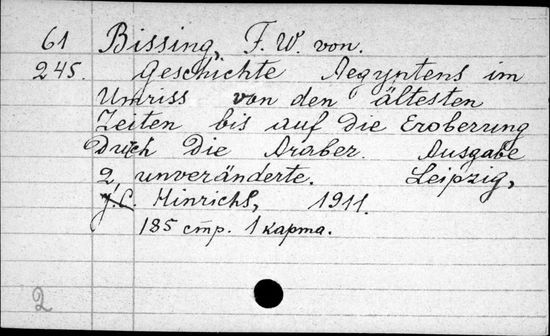 61 Bissing, F. W. von.
245. Geschichte Aegyptens im
Umriss von den ältesten
Zeiten bis auf die Eroberung
Durch die Araber. Ausgabe
2, unveränderte. Leipzig,
J.C. Hinrichs, 1911.
185 стр. 1 карта.
2